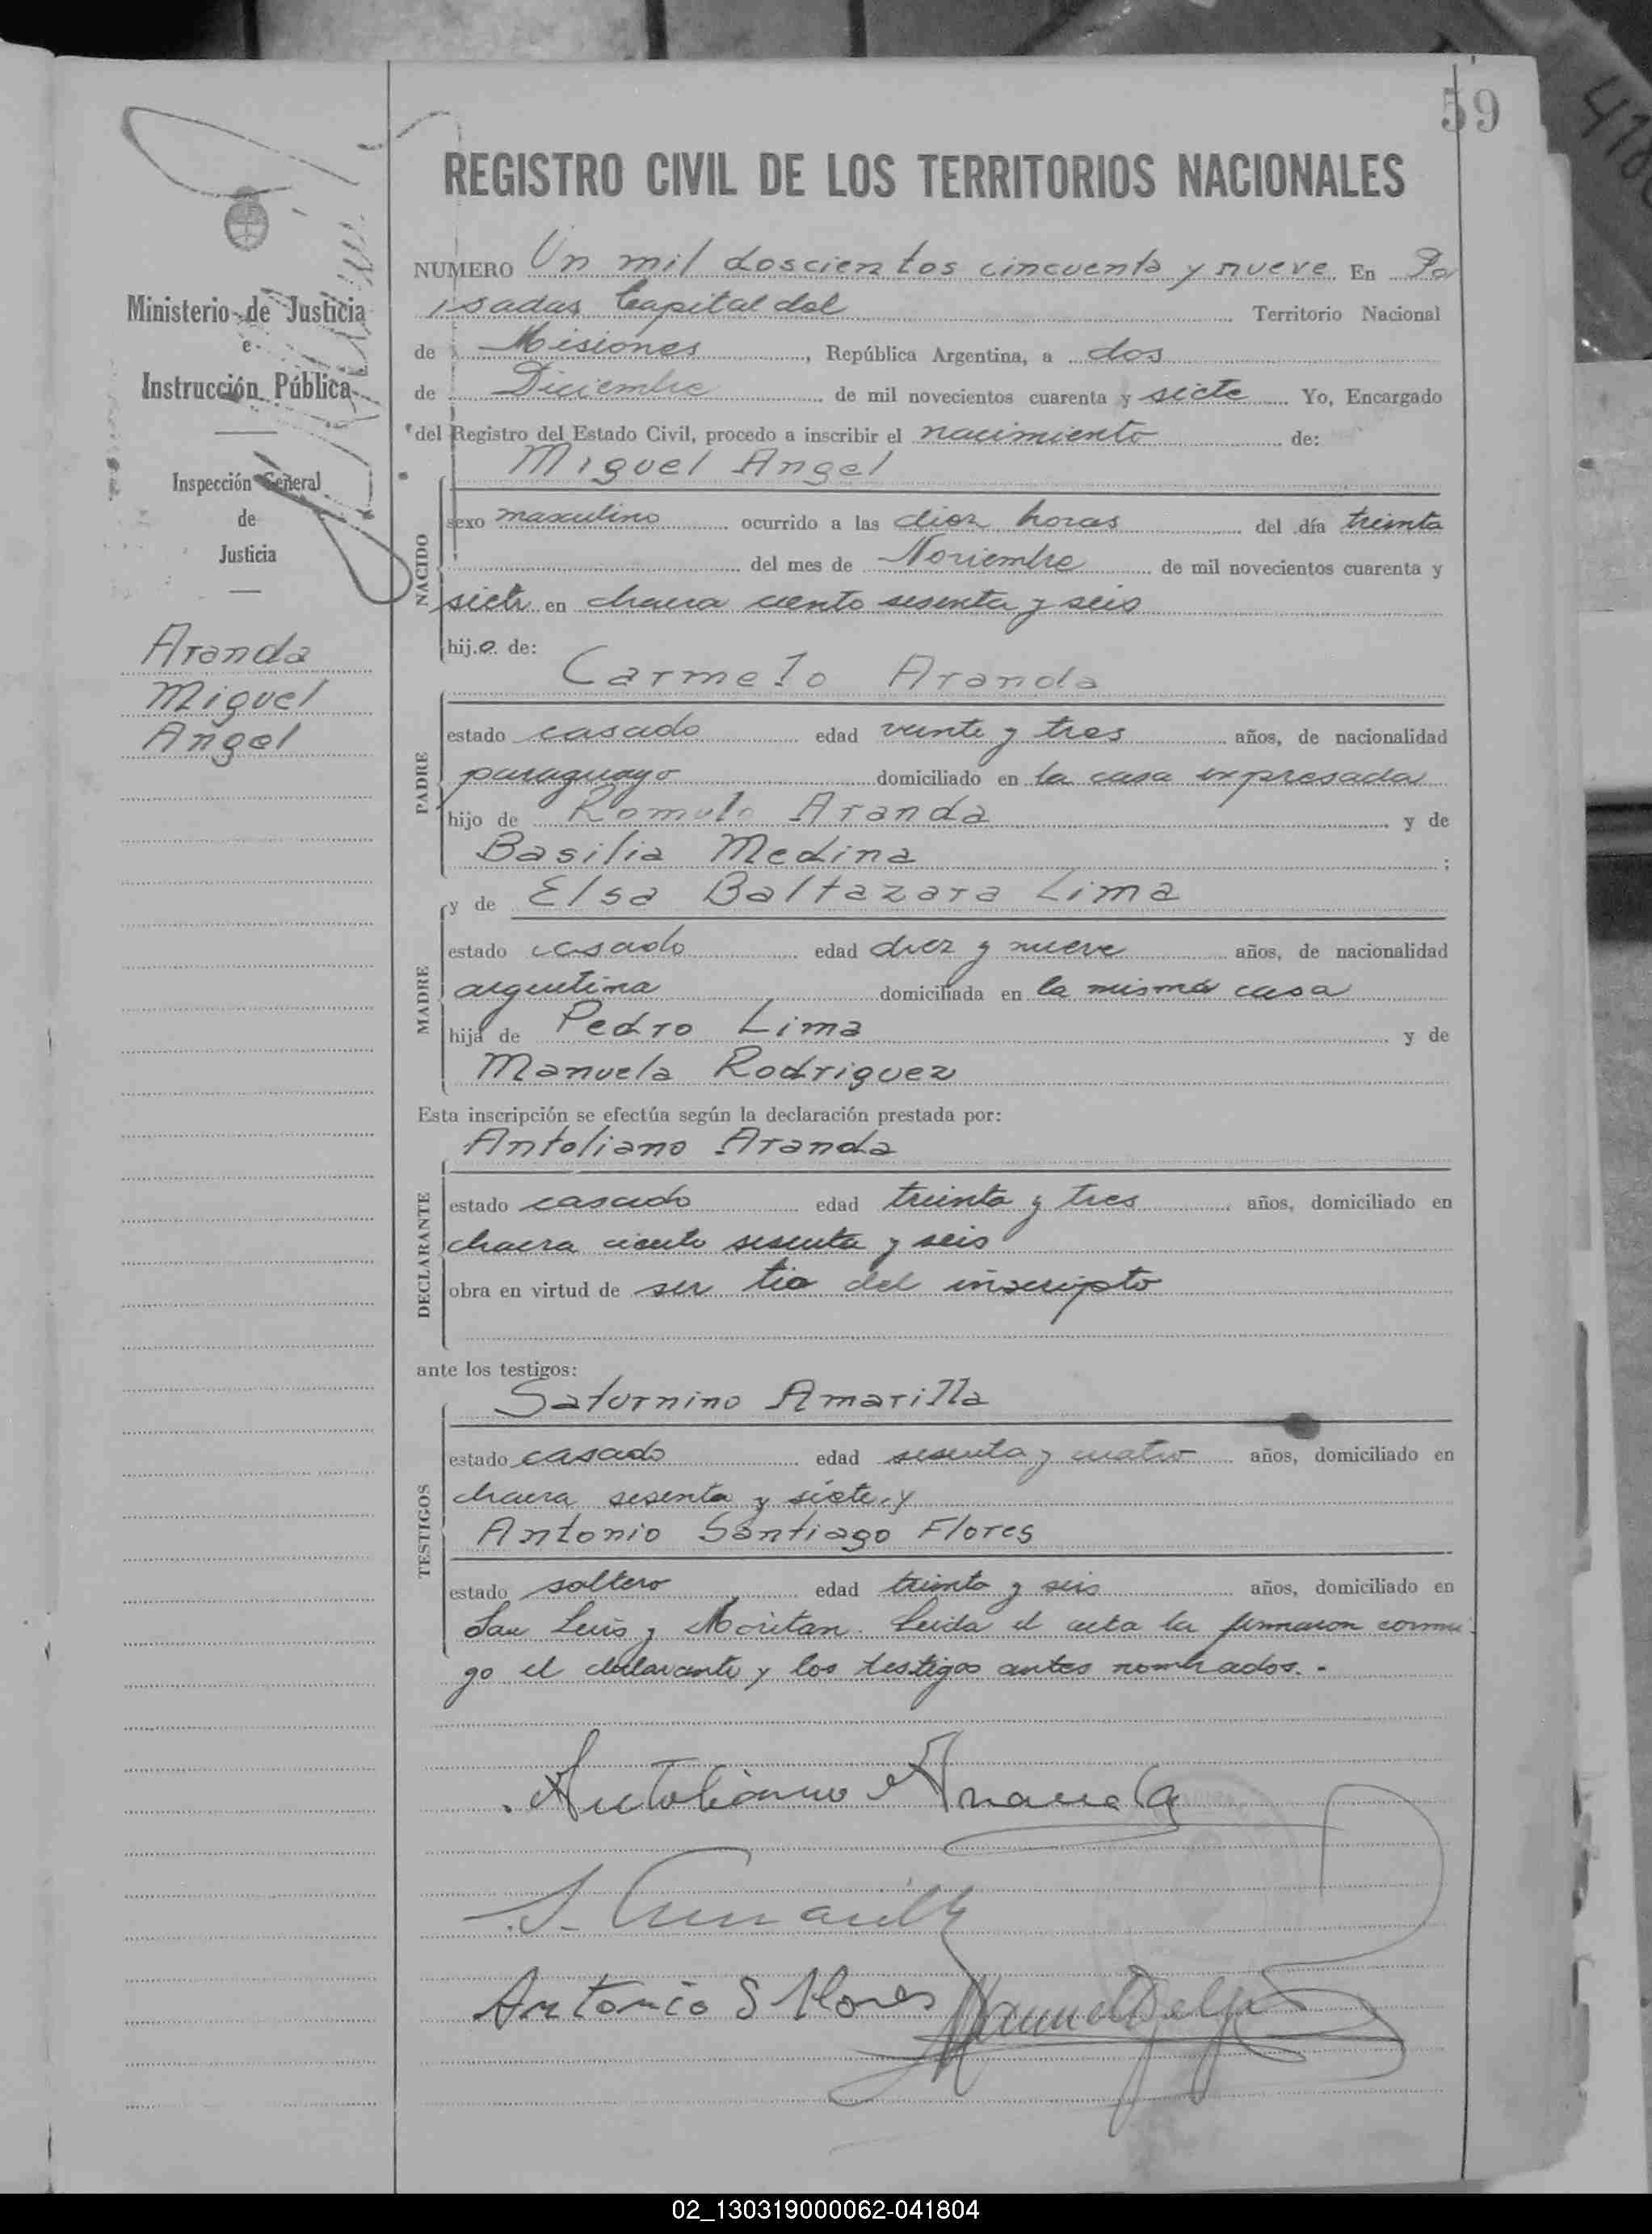 59
REGISTRO CIVIL DE LOS TERRITORIOS NACIONALES
Ministerio de Justicia
e
Instrucción Pública
Inspección General
de
Justicia
Aranda
Miguel
Angel
NUMERO Un mil doscientos cincuenta y nueve En Po
sadas Capital del Territorio Nacional
de Misiones, República Argentina, a dos
de Diciembre de mil novecientos cuarenta y siete Yo, Encargado
del Registro del Estado Civil, procedo a inscribir el nacimiento de:
Miguel Angel
NACIDO
sexo masculino ocurrido a las diez horas del día treinta
del mes de Noviembre de mil novecientos cuarenta y
siete en chacra ciento sesenta y seis
hijo de:
Carmelo Aranda
PADRE
estado casado edad veinte y tres años, de nacionalidad
paraguayo domiciliado en la casa expresada
hijo de Romulo Aranda y de
Basilia Medina ;
y de Elsa Baltazara Lima
MADRE
estado casado edad diez y nueve años, de nacionalidad
argentina domiciliada en la misma casa
hija de Pedro Lima y de
Manuela Rodriguez
Esta inscripción se efectúa según la declaración prestada por:
Antoliano Aranda
DECLARANTE
estado casado edad treinta y tres años, domiciliado en
chacra ciento sesenta y seis
obra en virtud de ser tio del inscripto
ante los testigos:
Saturnino Amarilla
TESTIGOS
estado casado edad sesenta y cuatro años, domiciliado en
chacra sesenta y siete, y
Antonio Santiago Flores
estado soltero edad treinta y seis años, domiciliado en
San Luis y Moritan. Leida el acta la firmaron conmi
go el declarante y los testigos antes nombrados. -
Antoliano Aranda
S. Amarilla
Antonio S Flores
02_130319000062-041804